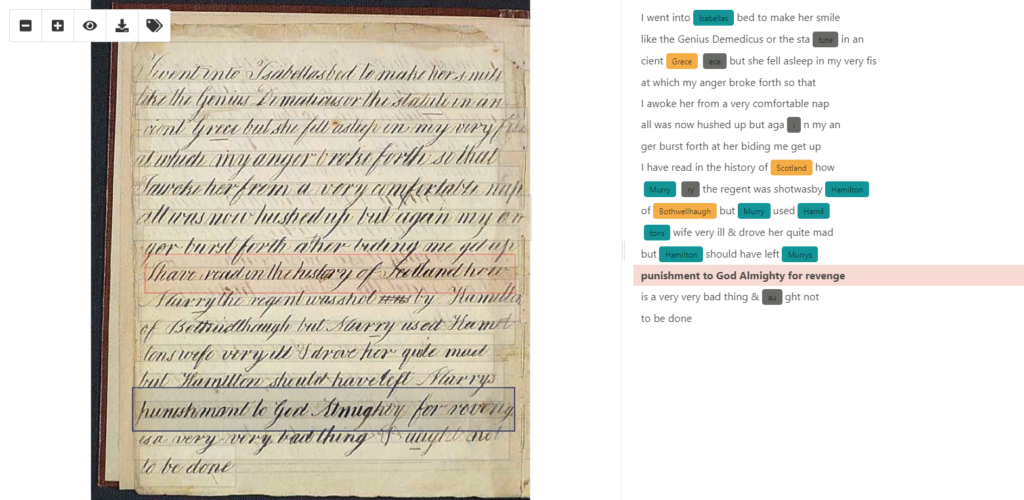 I went into Isabellas bed to make her smile
like the Genius Demedicus or the statute in an
cient Grece but she fell asleep in my very
at which my anger broke forth so that
I awoke her from a very comfortable nap
all was now hushed up but again my an
ger burst forth at her biding me get up
I have read in the history of Scotland how
Murry the regent was shot by Hamilton
of Bothwellhaugh but Murry used Hamil
tons wife very ill & drove her quite mad
but Hamilton should have left Murrys
punishment to God Almighty for revenge
is a very very bad thing & aught not
to be done
I went into Isabellas bed to make her smile
like the Genius Demedicus or the sta tute in an
cient Grece ece but she fell asleep in my very fis
at which my anger broke forth so that
I awoke her from a very comfortable nap
all was now hushed up but aga i n my an
ger burst forth at her biding me get up
I have read in the history of Scotland how
Murry ry the regent was shotwasby Hamilton
of Bothwellhaugh but Murry used Hamil
tons wife very ill & drove her quite mad
but Hamilton should have left Murrys
punishment to God Almighty for revenge
is a very very bad thing & au ght not
to be done